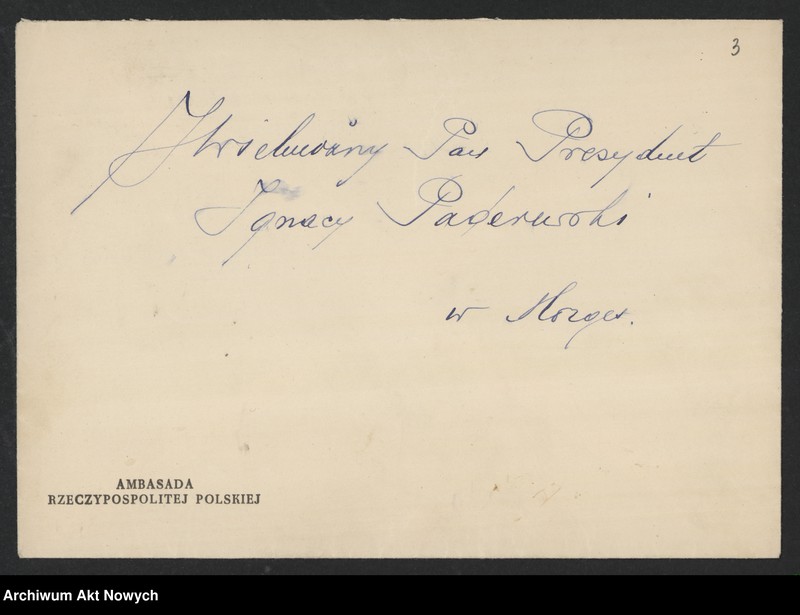 3
JWielmożny Pan Prezydent
Ignacy Paderewski
w Morges.
AMBASADA
RZECZYPOSPOLITEJ POLSKIEJ
Archiwum Akt Nowych